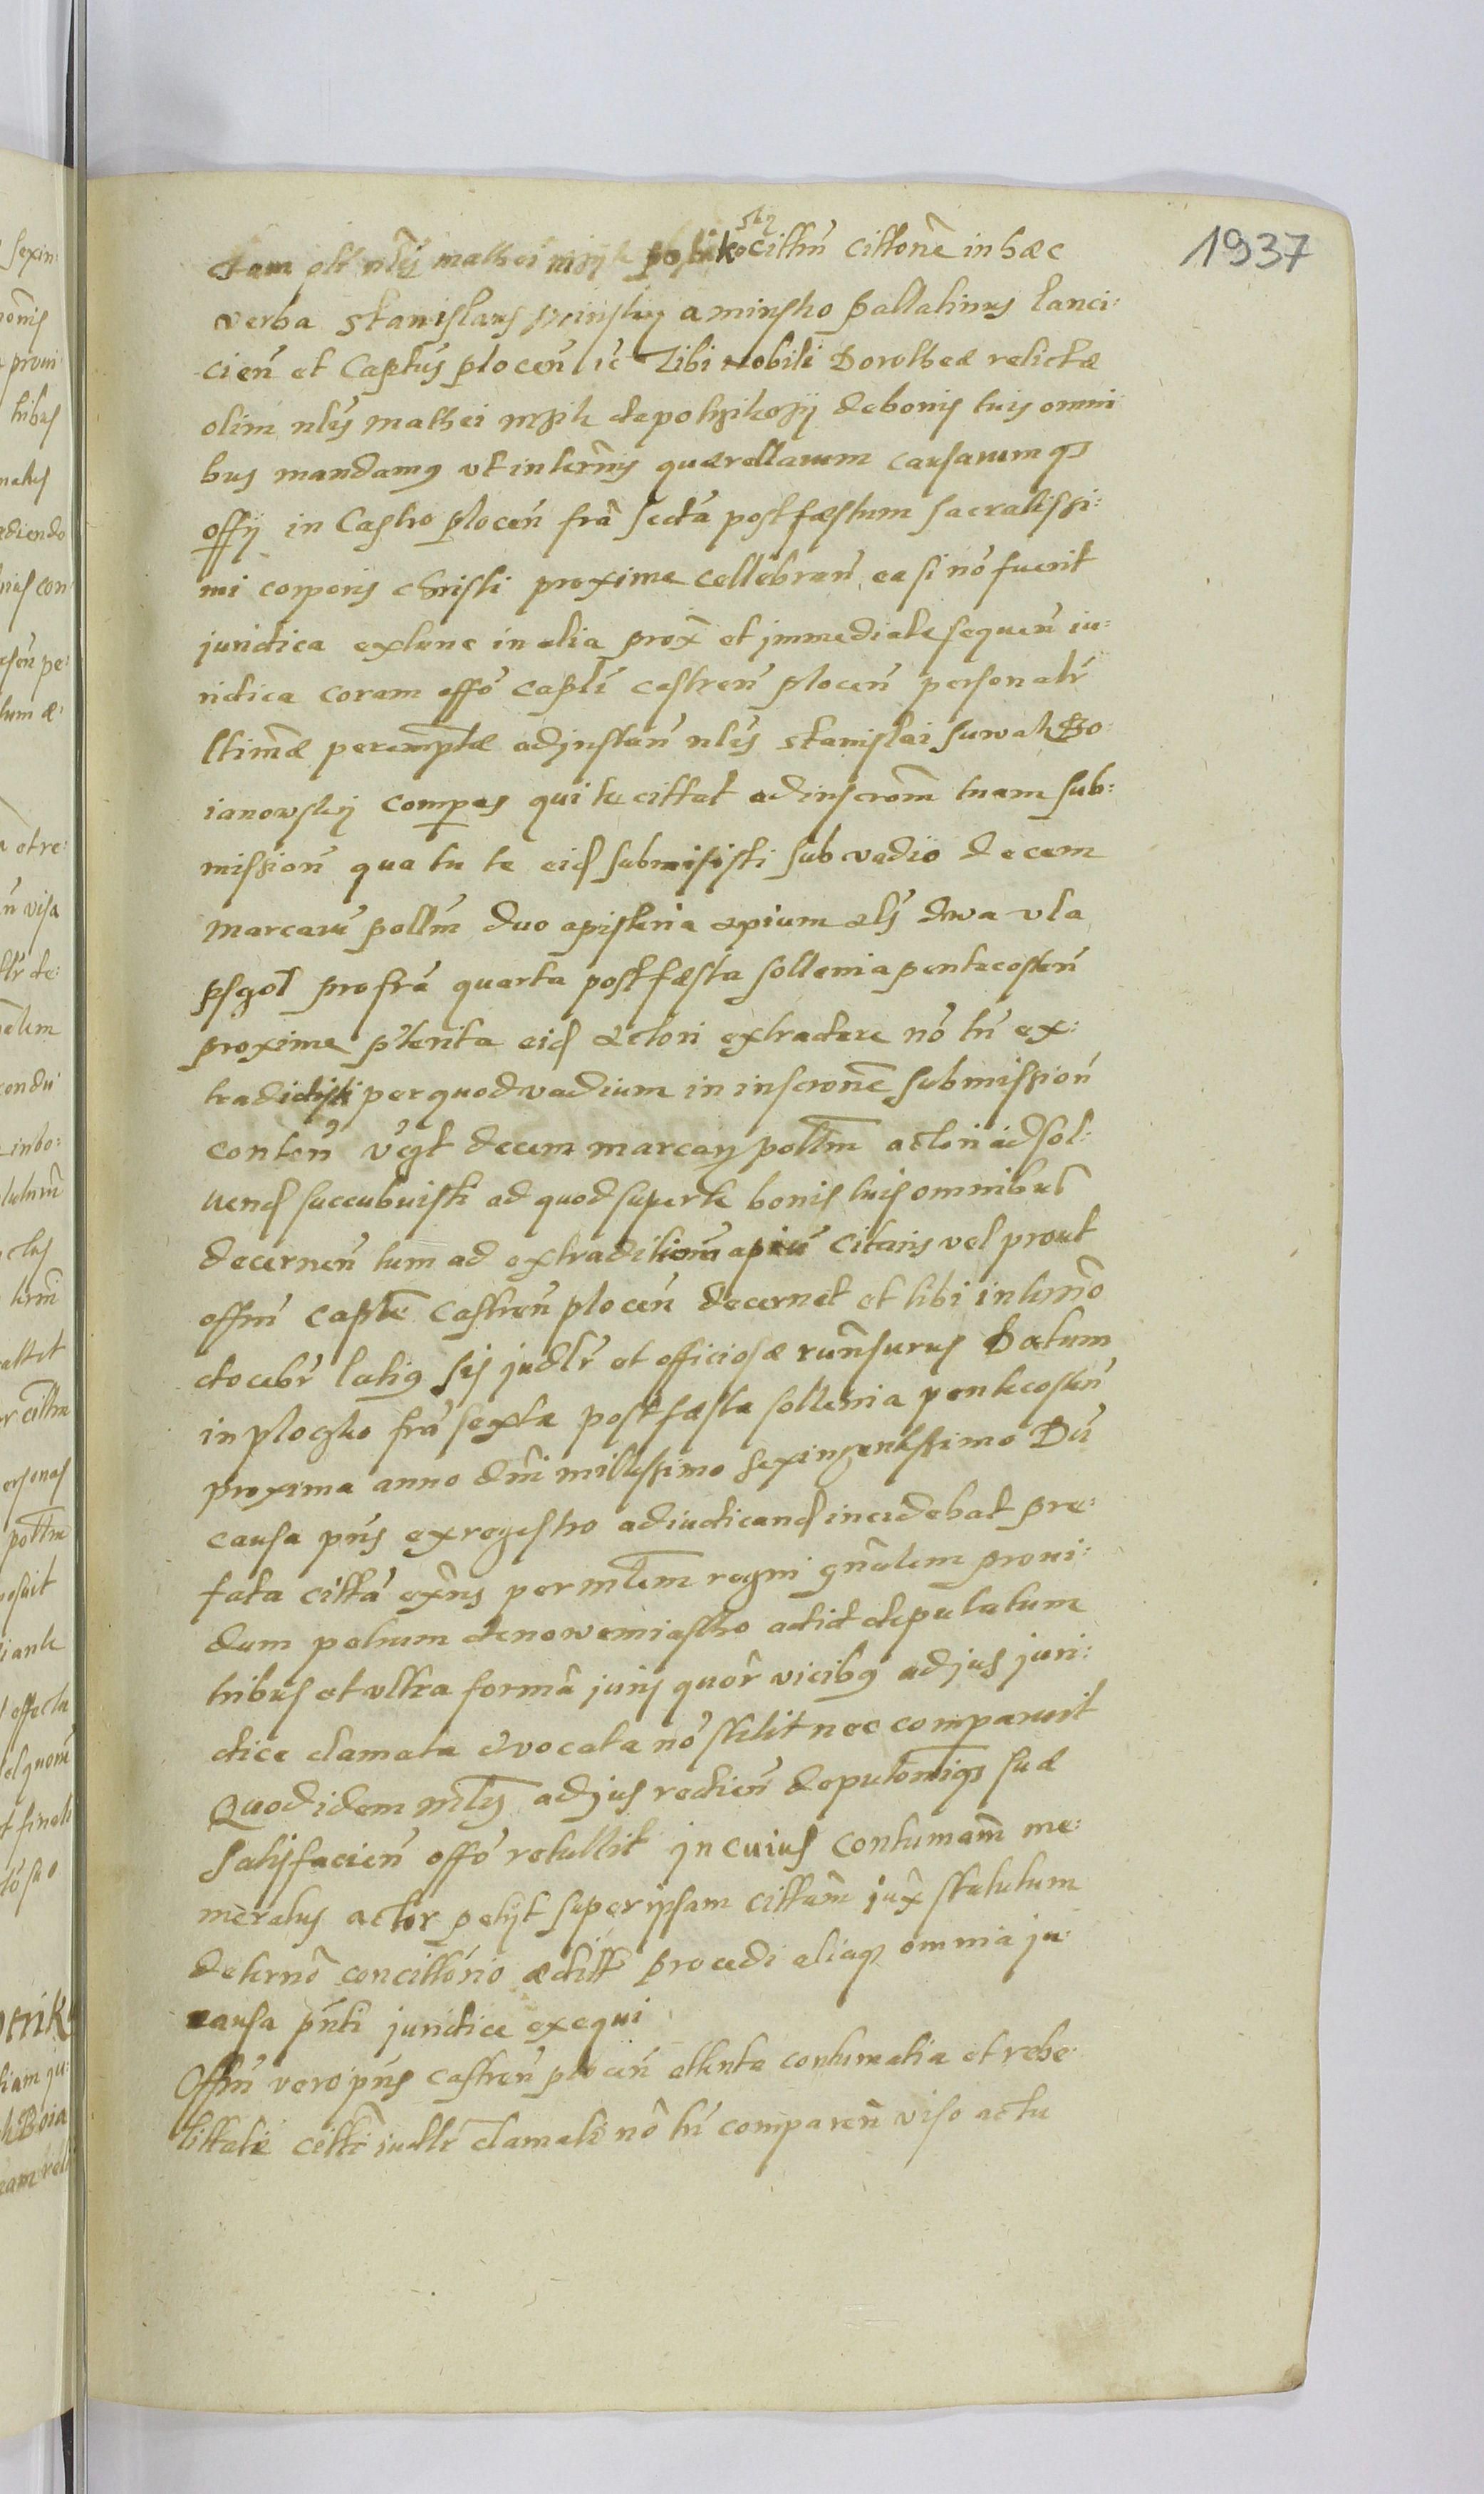 1937
ctam olt nlis mathei msik cittm cittone in hæc
verba Stanislaus minsky a minsko Pallatinus lanci:
cien et Captus plocen ic Tibi Nobili Dorotheæ relictæ
olim nlis mathei msik de de bonis tuis omni
bus mandamus vt in termis quærellarum causarumqs
offy in Castro plocen fra sexta post fæstum sacratissi:
mi corporis christi proxime cellebran ea si no fuerit
juridica extunc in alia prox et jmmediate sequen iu:
ridica coram offo capli castren plocen personalr
ltimæ peremptæ ad jnstan nlis Stanislai suwak Bo
ianowsky compas qui te cittat ad inscrom tuam sub:
mission qua tu te eid submisisti sub vadio decem
marcaru pollm duo apisteria apium als dwa vla
psgol pro fra quarta post fæsta sollenia pentecosten
proxime pterita eid actori extradere no tn ex:
tradidisti per quod vadium in inscrone submission
conten vgt decem marcar pollm actori id sol:
uend succubuisti ad quod super te bonis tuis omnibus
decernen tum ad extraditionem apium citaris vel prout
offm caple Castren plocen decernet et tibi in termo
docebr latius sis judlr et officiosæ runsurus Datum
in plocko fra sexta post fæsta sollenia pentecosten
proxima anno dni millessimo sexingentissimo Du
causa pns ex regestro adiudicand incidebat pre:
fata citta exns per mlem regni gnalem proui:
dum petrum de nowemiasto ad id deputatum
tribus et vltra forma juris quor vicibus ad jus juri:
dice clamata evocata no stetit nec comparuit
Quod idem mlis ad jus redien deputoniqs suæ
satisfacien offo retullit jn cuius contumam me:
moratus actor petyt super ipsam cittam jux statutum
de termo concittorio æditt procedi aliaqs omnia ju
causa pnti juridice exequi
Offm vero pns castren plocen attenta contumatia et rebe
llittate citte iudlr clamate no tn comparen viso actu